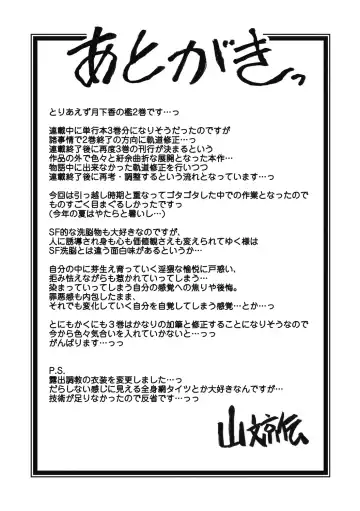 あとがきっ
とりあえず月下香の檻2巻です…っ
連載中に単行本3巻分になりそうだったのですが
諸事情で2巻終了の方向に軌道修正…っ
連載終了後に再度3巻の刊行が決まるという
作品の外で色々と好余曲折な展開となった本作…
物語中に出来なかった軌道修正を行いつつ
連載終了後に再考・調整するという流れとなっています…っ
今回は引っ越し時期と重なってゴタゴタした中での作業となったので
ものすごく目まぐるしかったですっ
(今年の夏はやたらと暑いし…)
SF的な洗脳物も大好きなのですが、
人に誘導され身も心も価値観さえも変えられてゆく様は
SF洗脳とは違う面白味があるというか…
自分の中に芽生え育っていく淫猥な愉悦に戸惑い、
拒み怯えながらも惹かれていってしまう…
染まっていってしまう自分の感覚への焦りや後悔。
罪悪感も内包したまま、
それでも変化していく自分を自覚してしまう感覚…とか…っ
とにもかくにも３巻はかなりの加筆と修正することになりそうなので
今から色々気合いを入れていかないと…っっ
がんばります…っっ
P.S.
露出調教の衣装を変更しました…っ
だらしない感じに見える全身網タイツとか大好きなんですが…
技術が足りなかったので反省です…っ
山文京伝